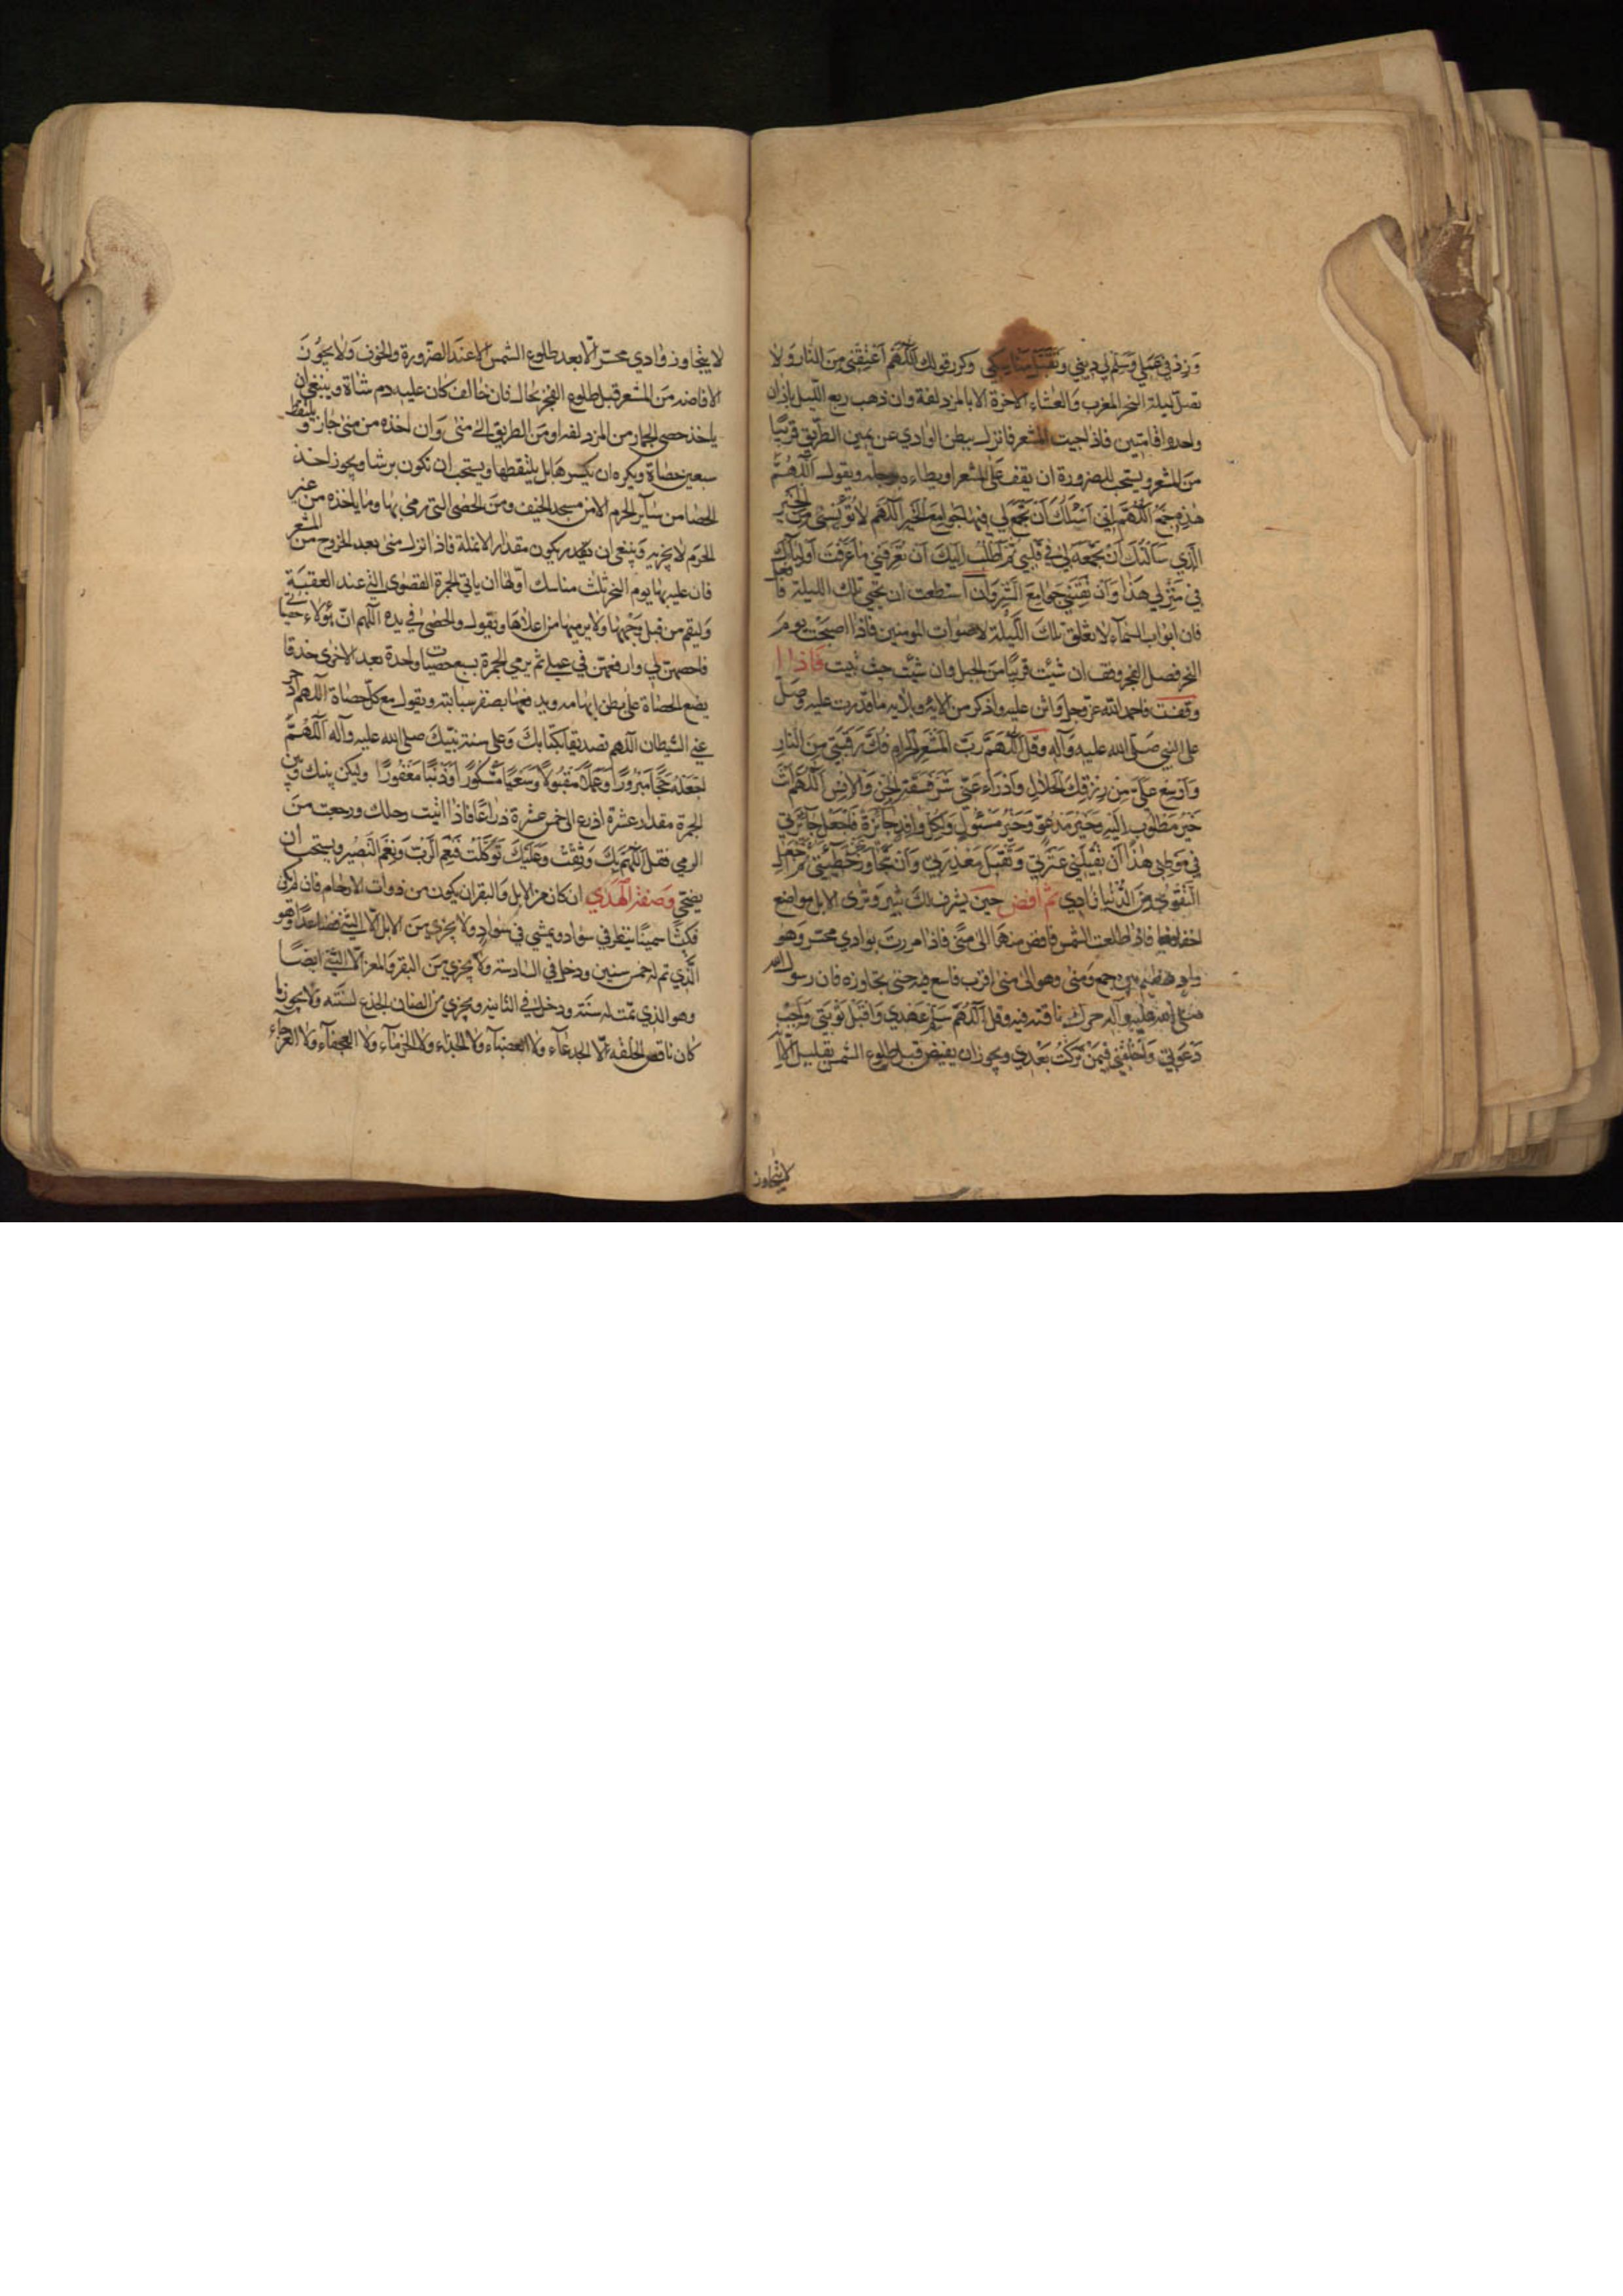 وَزِدْ في عَمَلي وَسَلِّم لي ديني وَتَقَبَّل مَناسِكي وكرر قولك اَللّهُمَّ اَعْتِقْني مِنَ النّارِ وَلا
تصل ليلة النحر المغرب والعشاء الاخرة الا بالمزدلفة وان ذهب ربع الليل باذان
واحد واقامتين فاذا جيت المشعر فانزل ببطن الوادي عن يمين الطريق قريبًا
من المشعر ويستحب للصرورة ان يقف على المشعر او يطاءه برجله ويقول اَللّهُمَّ
هذِهِ جَمْعٌ اَللّهُمَّ اِنّي اَسْئَلُكَ اَنْ تَجْمَعَ لي فيها جَوامِعَ الْخَيْرِ اَللّهُمَّ لا تُؤْيِسْني مِنَ الْخَيْرِ
الَّذي سَاَلْتُكَ اَنْ تَجْمَعَهُ لي في قَلْبي ثُمَّ اَطْلُبُ اِلَيْكَ اَنْ تُعَرِّفَني ما عَرَّفْتَ اَوْلِياءَكَ
في مَنْزِلي هذا وَاَنْ تَقِيَني جَوامِعَ الشَّرِّ وان استطعت ان تحيي تلك الليلة فافعل
فان ابواب السماء لا تغلق تلك الليلة لاصوات المومنين فاذا اصبحت يوم
النحر فصل الفجر وقف ان شئت قريبًا من الجبل وان شئت حيث تبيت فاذا
وقفت فاحمد الله عز وجل واثن عليه واذكر من الايه وبلايه ما قدرت عليه وصل
على النبي صلى الله عليه وآله وقل اَللّهُمَّ رَبَّ الْمَشْعَرِ الْحَرامِ فُكَّ رَقَبَتي مِنَ النّارِ
وَاَوْسِعْ عَلَيَّ مِنْ رِزْقِكَ الْحَلالِ وَادْرَاْ عَنّي شَرَّ فَسَقَةِ الْجِنِّ وَالْاِنْسِ اَللّهُمَّ اَنْتَ
خَيْرُ مَطْلُوبٍ اِلَيْهِ وَخَيْرُ مَدْعُوٍّ وَخَيْرُ مَسْئُولٍ وَلِكُلِّ وافِدٍ جائِزَةٌ فَاجْعَلْ جائِزَتي
في مَوْطِني هذا اَنْ تُقيلَني عَثْرَتي وَتَقْبَلَ مَعْذِرَتي وَاَنْ تَجاوَزَ عَنْ خَطيئَتي ثُمَّ اجْعَلِ
التَّقْوى مِنَ الدُّنْيا زادي ثم افض حين يشرف لك ثبير وترى الابل مواضع
اخفافها فاذا طلعت الشمس فافض منها الى منى فاذا مررت بوادي محسر وهو
واد عظيم بين جمع ومنى وهو الى منى اقرب فاسع فيه حتى تجاوزه فان رسول الله
صلى الله عليه وآله حرك ناقته فيه وقل اَللّهُمَّ سَلِّمْ عَهْدي وَاقْبَلْ تَوْبَتي وَاَجِبْ
دَعْوَتي وَاخْلُفْني فيمَنْ تَرَكْتُ بَعْدي ويجوز ان يفيض قبل طلوع الشمس بقليل الا انه
لا يتجاوز
لا يتجاوز وادي محسر الا بعد طلوع الشمس الا عند الضرورة والخوف ولا يجوز
الافاضه من المشعر قبل طلوع الفجر بحال فان خالف كان عليه دم شاة وينبغي ان
ياخذ حصى الجمار من المزدلفه او من الطريق الى منى وان اخذه من منى جاز ويلتقط
سبعين حصاة ويكره ان يكسرها بل يلتقطها ويستحب ان تكون برشا ويجوز اخذ
الحصا من ساير الحرم الا من مسجد الخيف ومن الحصى التي رمى بها وما ياخذه من غير
الحرم لا يجزيه وينبغي ان يكون مقدار الانملة فاذا نزل منى بعد الخروج من المشعر
فان عليه بها يوم النحر ثلث مناسك اولها ان ياتي الجمرة القصوى التي عند العقبة
وليقم من قبل وجهها ولا يرميها من اعلاها ويقول والحصى في يده اللهم ان هؤلاء حصياتي
فاحصهن لي وارفعهن في عملي ثم يرمي الجمرة بسبع حصيات واحدة بعد الاخرى خذفا
يضع الحصاة على بطن ابهامه ويدفعها بظفر سبابته ويقول مع كل حصاة اللهم ادحر
عني الشيطان اللهم تصديقا بكتابك وعلى سنة نبيك صلى الله عليه وآله اَللّهُمَّ
اجْعَلْهُ حَجًّا مَبْرُورًا وَعَمَلًا مَقْبُولًا وَسَعْيًا مَشْكُورًا وَذَنْبًا مَغْفُورًا وليكن بينك وبين
الجمرة مقدار عشرة اذرع الى خمس عشرة ذراعا فاذا اتيت رحلك ورجعت من
الرمي فقل اَللّهُمَّ بِكَ وَثِقْتُ وَعَلَيْكَ تَوَكَّلْتُ فَنِعْمَ الرَّبُّ وَنِعْمَ النَّصيرُ ويستحب ان
يضحي وصفة الهدي ان كان من الابل والبقر ان يكون من ذوات الارحام فان لم يكن
فكبشا سمينا ينظر في سواد ويمشي في سواد ولا يجزي من الابل الا الثني فصاعدا وهو
الذي تم له خمس سنين ودخل في السادسة ولا يجزي من البقر والمعز الا الثني ايضا
وهو الذي تمت له سنة ودخل في الثانيه ويجزي من الضان الجذع لسنته ولا يجوز ما
كان ناقص الخلقه ولا الجدعاء ولا العضباء ولا الجذاء ولا الخرماء ولا العجفاء ولا العرجاء